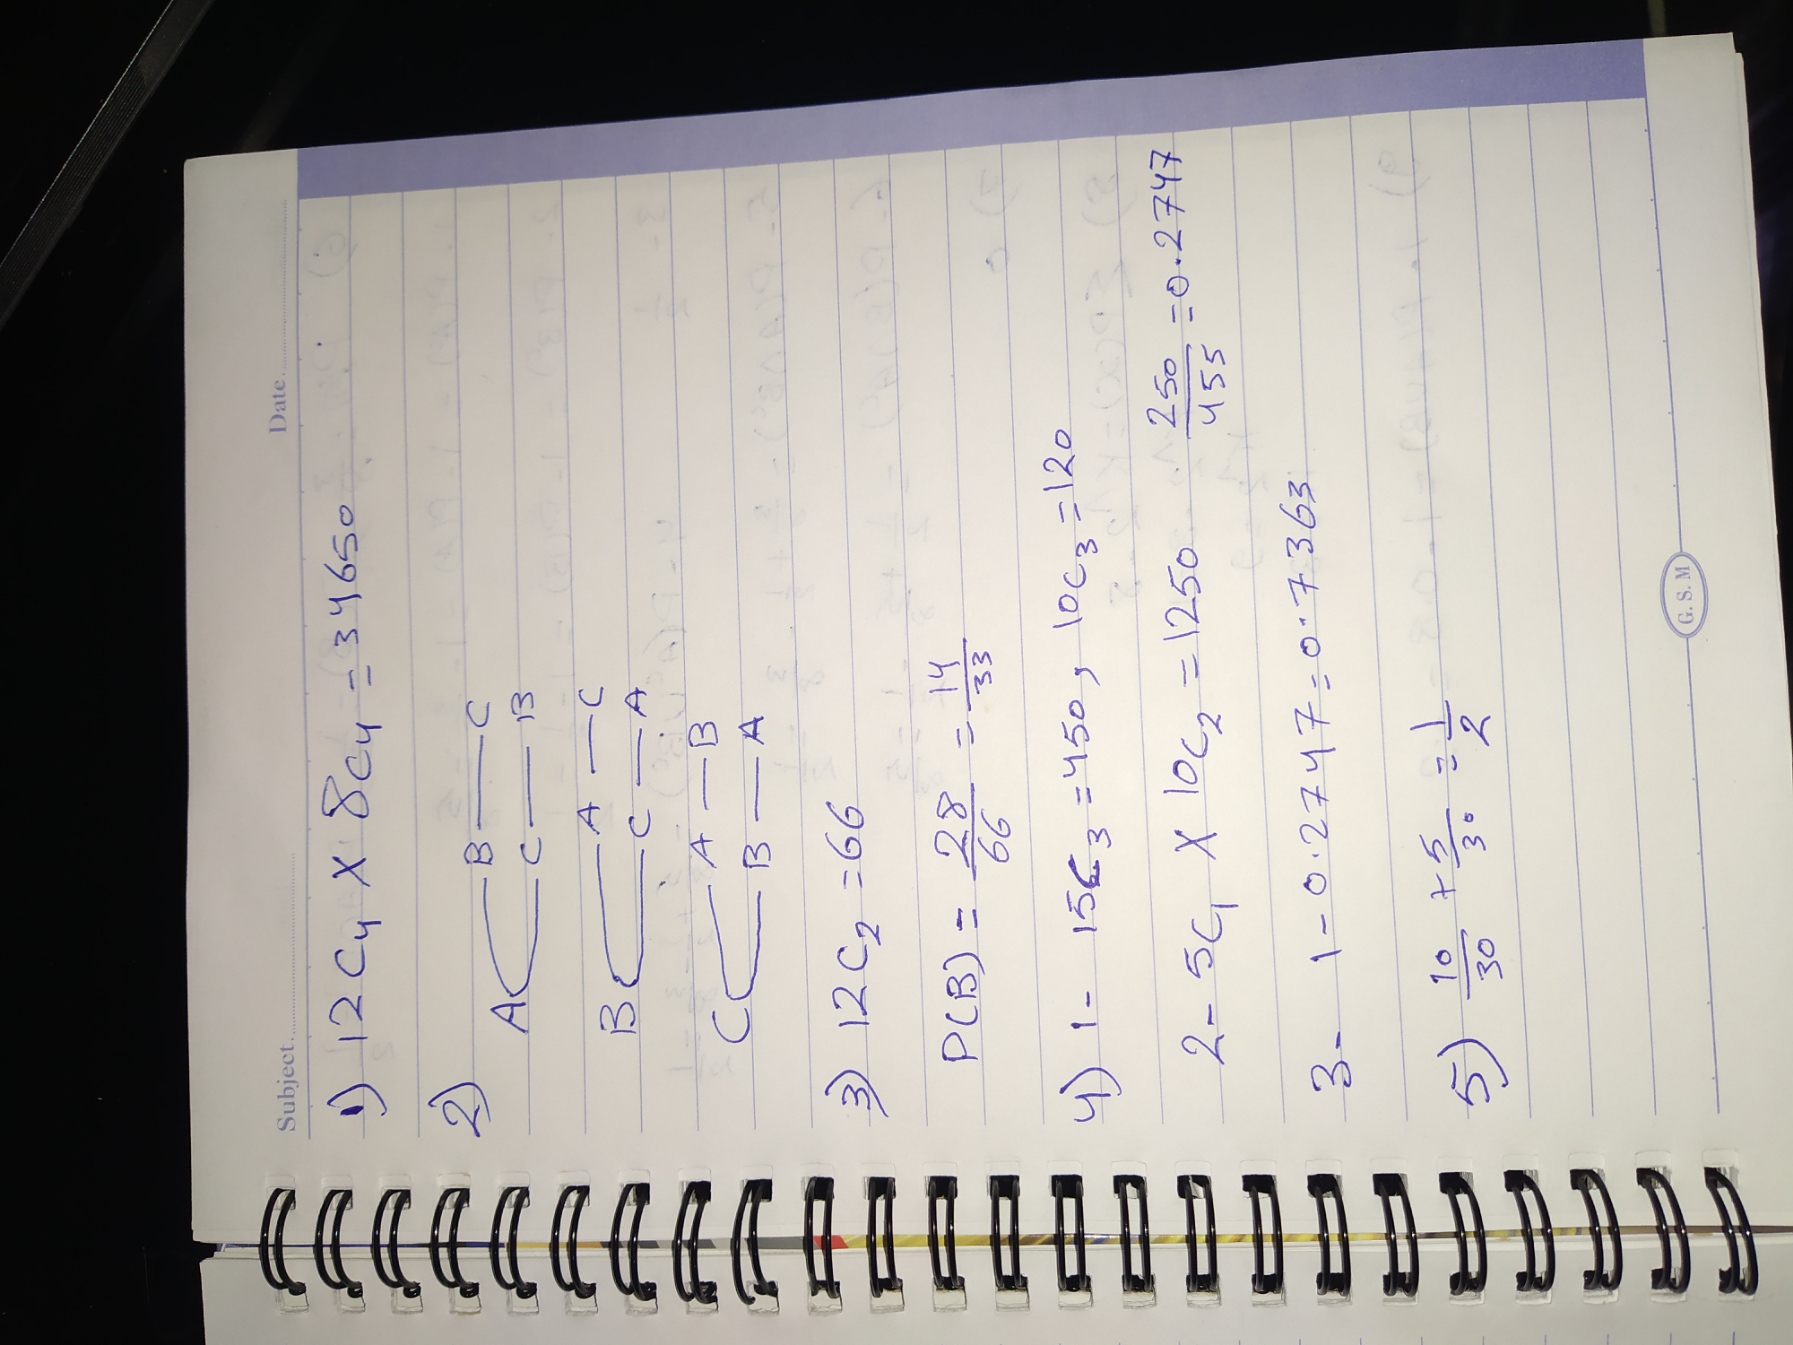 Subject. Date.
1) 12C₄ X 8C₄ = 34650
2)
B — C
A
C — B
A — C
B
C — A
A — B
C
B — A
3) 12C₂ = 66
P(B) = 28/66 = 14/33
4) 1- 15C₃ = 450, 10C₃ = 120
2- 5C₁ X 10C₂ = 1250 250/455 = 0.2747
3- 1 - 0.2747 = 0.7363
5) 10/30 + 5/30 = 1/2
G. S. M